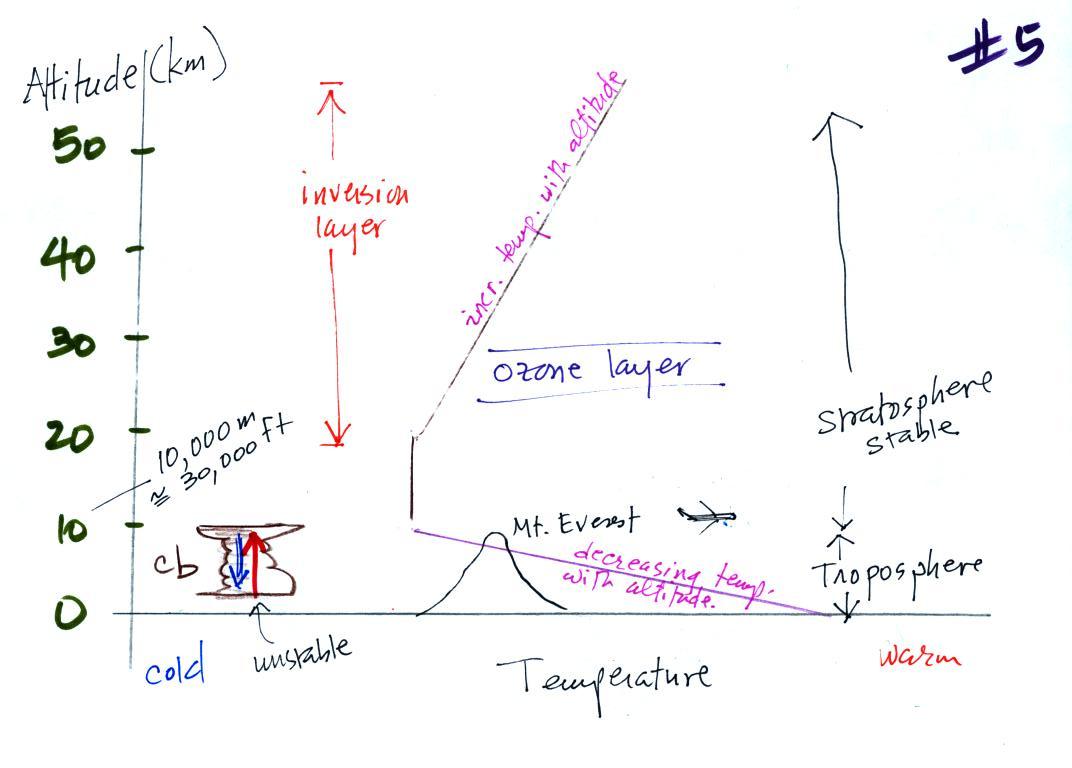 #5
Altitude (km)
50
40
30
20
10
0
inversion
layer
incr. temp. with altitude
ozone layer
Stratosphere
stable
10,000 m
≈ 30,000 ft
Mt. Everest
decreasing temp.
with altitude.
Troposphere
cb
cold
unstable
Temperature
warm